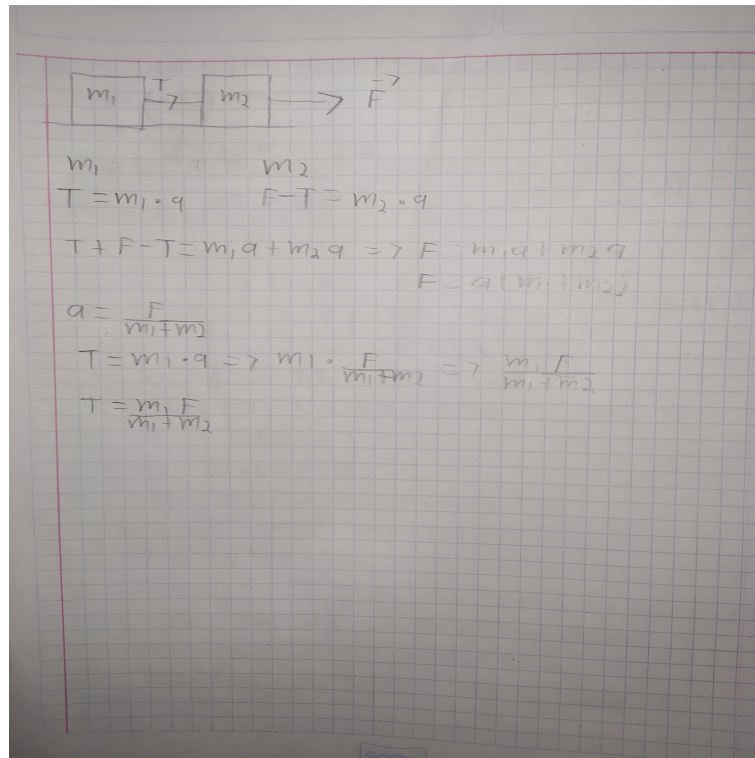 m₁ T m₂ F⃗
m₁ m₂
T = m₁ • a F-T = m₂ • a
T + F - T = m₁a + m₂a => F = m₁a + m₂a
F = a(m₁ + m₂)
a = F/(m₁+m₂)
T = m₁ • a => m₁ • F/(m₁+m₂) => m₁ F/(m₁+m₂)
T = m₁ F/(m₁+m₂)